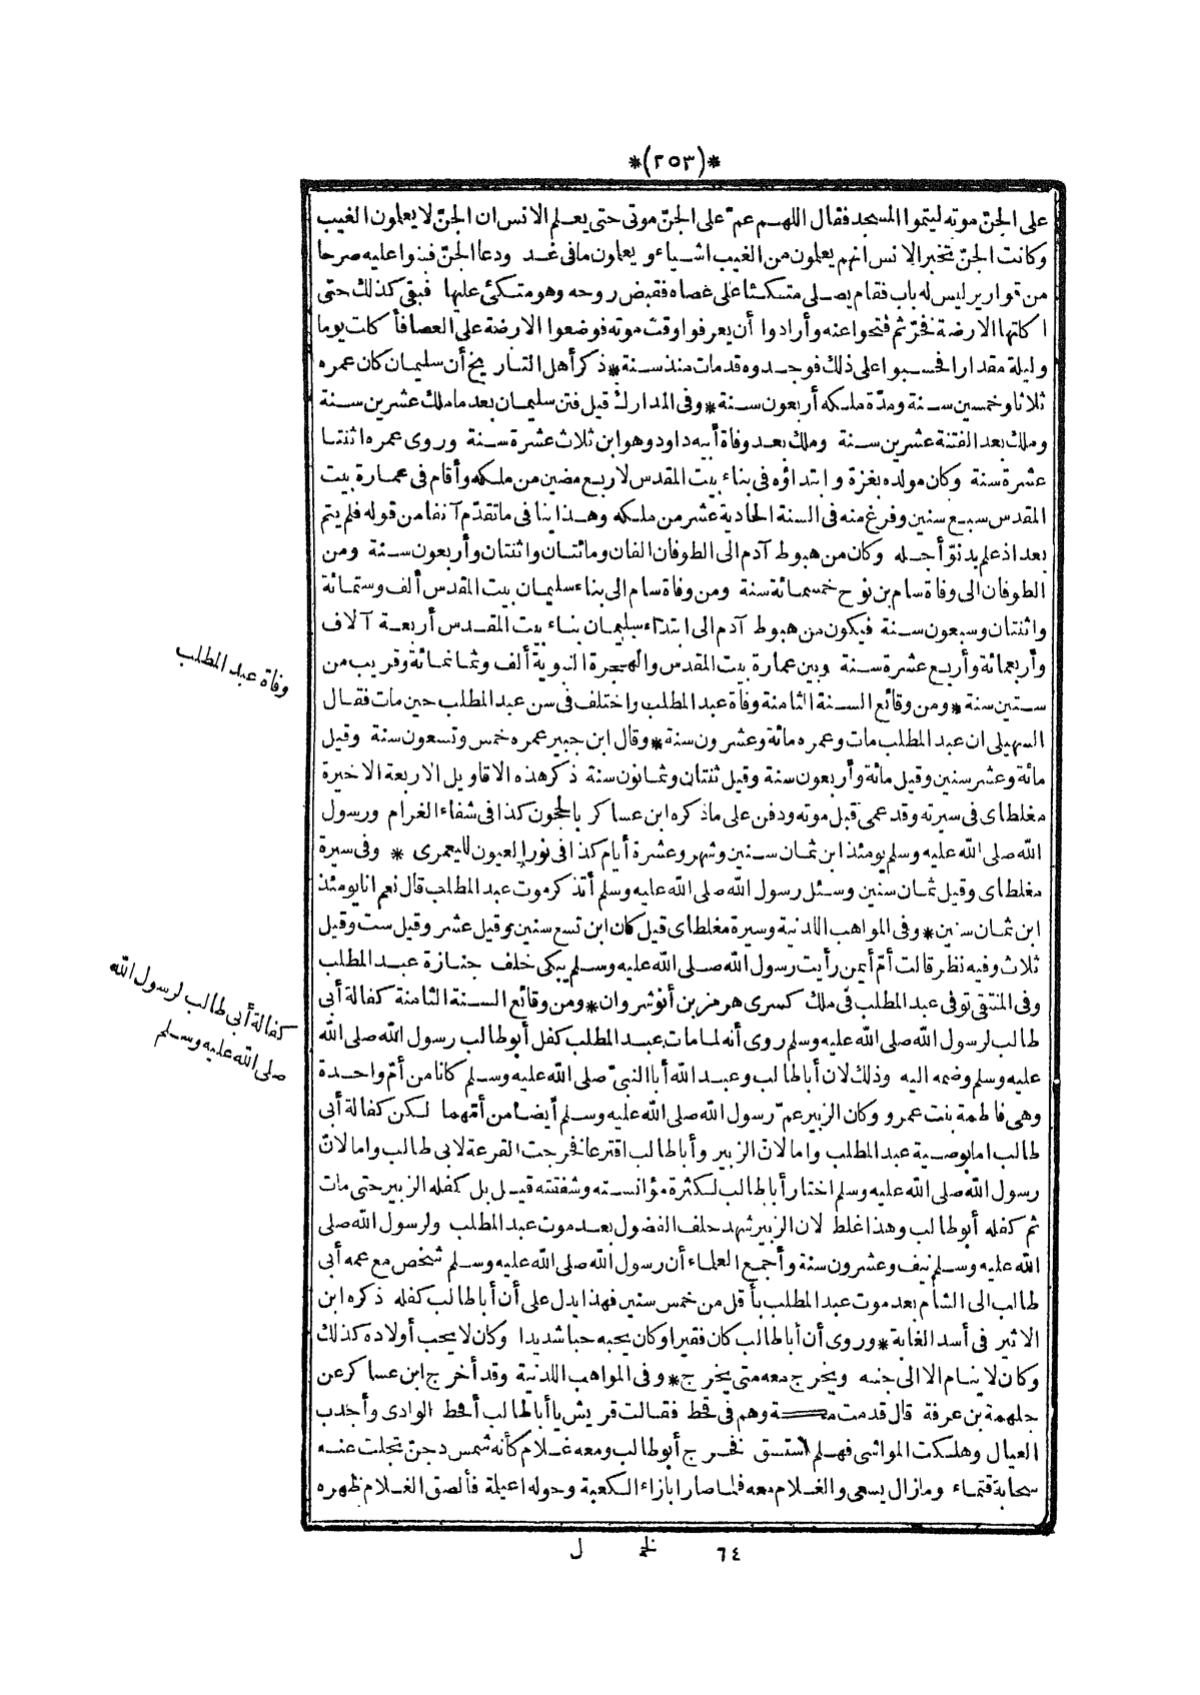 *(٢٥٣)*
على الجنّ موته ليتموا المسجد فقال اللهم عمّ على الجنّ موتى حتى يعلم الانس ان الجنّ لا يعلمون الغيب
وكانت الجنّ تخبر الانس انهم يعلمون من الغيب اشياء ويعلمون ما فى غد ودعا الجنّ فبنوا عليه صرحا
من قوارير ليس له باب فقام يصلى متكئا على عصاه فقبض روحه وهو متكئ عليها فبقى كذلك حتى
اكلتها الارضة فخرّ ثم فتحوا عنه وأرادوا أن يعرفوا وقت موته فوضعوا الارضة على العصا فأكلت يوما
وليلة مقدارا فحسبوا على ذلك فوجدوه قد مات منذ سنة * ذكر أهل التاريخ أن سليمان كان عمره
ثلاثا وخمسين سنة ومدّة ملكه أربعون سنة * وفى المدارك قيل فتن سليمان بعد ما ملك عشرين سنة
وملك بعد الفتنة عشرين سنة وملك بعد وفاة أبيه داود وهو ابن ثلاث عشرة سنة وروى عمره اثنتا
عشرة سنة وكان مولده بغزة وابتداؤه فى بناء بيت المقدس لاربع مضين من ملكه وأقام فى عمارة بيت
المقدس سبع سنين وفرغ منه فى السنة الحادية عشر من ملكه وهذا ينافى ما تقدّم آنفا من قوله فلم يتم
بعد اذ علم بدنوّ أجله وكان من هبوط آدم الى الطوفان الفان ومائتان واثنتان وأربعون سنة ومن
الطوفان الى وفاة سام بن نوح خمسمائة سنة ومن وفاة سام الى بناء سليمان بيت المقدس ألف وستمائة
واثنتان وسبعون سنة فيكون من هبوط آدم الى ابتداء سليمان بناء بيت المقدس أربعة آلاف
وأربعمائة وأربع عشرة سنة وبين عمارة بيت المقدس والهجرة النبوية ألف وثمانمائة وقريب من
ستين سنة * ومن وقائع السنة الثامنة وفاة عبد المطلب واختلف فى سن عبد المطلب حين مات فقال
السهيلى ان عبد المطلب مات وعمره مائة وعشرون سنة * وقال ابن جبير عمره خمس وتسعون سنة وقيل
مائة وعشر سنين وقيل مائة وأربعون سنة وقيل ثنتان وثمانون سنة ذكر هذه الاقاويل الاربعة الاخيرة
مغلطاى فى سيرته وقد عمى قبل موته ودفن على ما ذكره ابن عساكر بالحجون كذا فى شفاء الغرام ورسول
الله صلى الله عليه وسلم يومئذ ابن ثمان سنين وشهر وعشرة أيام كذا فى نور العيون لليعمرى * وفى سيرة
مغلطاى وقيل ثمان سنين وسئل رسول الله صلى الله عليه وسلم أتذكر موت عبد المطلب قال نعم انا يومئذ
ابن ثمان سنين * وفى المواهب اللدنية وسيرة مغلطاى قيل كان ابن تسع سنين وقيل عشر وقيل ست وقيل
ثلاث وفيه نظر قالت أمّ أيمن رأيت رسول الله صلى الله عليه وسلم يبكى خلف جنازة عبد المطلب
وفى المنتقى توفى عبد المطلب فى ملك كسرى هرمز بن أنوشروان * ومن وقائع السنة الثامنة كفالة أبى
طالب لرسول الله صلى الله عليه وسلم روى أنه لما مات عبد المطلب كفل أبو طالب رسول الله صلى الله
عليه وسلم وضمه اليه وذلك لان أبا طالب وعبد الله أبا النبىّ صلى الله عليه وسلم كانا من أمّ واحدة
وهى فاطمة بنت عمرو وكان الزبير عمّ رسول الله صلى الله عليه وسلم أيضا من أمّهما لكن كفالة أبى
طالب اما بوصية عبد المطلب واما لانّ الزبير وأبا طالب اقترعا فخرجت القرعة لابى طالب واما لانّ
رسول الله صلى الله عليه وسلم اختار أبا طالب لكثرة مؤانسته وشفقته قيل بل كفله الزبير حتى مات
ثم كفله أبو طالب وهذا غلط لان الزبير شهد حلف الفضول بعد موت عبد المطلب ولرسول الله صلى
الله عليه وسلم نيف وعشرون سنة وأجمع العلماء أن رسول الله صلى الله عليه وسلم شخص مع عمه أبى
طالب الى الشأم بعد موت عبد المطلب بأقل من خمس سنين فهذا يدل على أن أبا طالب كفله ذكره ابن
الاثير فى أسد الغابة * وروى أن أبا طالب كان فقيرا وكان يحبه حبا شديدا وكان لا يحب أولاده كذلك
وكان لا ينام الا الى جنبه ويخرج معه متى يخرج * وفى المواهب اللدنية وقد أخرج ابن عساكر عن
جلهمة بن عرفة قال قدمت مكة وهم فى قحط فقالت قريش يا أبا طالب أقحط الوادى وأجدب
العيال وهلكت المواشى فهلم استسق فخرج أبو طالب ومعه غلام كأنه شمس دجنّ تجلت عنه
سحابة قتماء وما زال يسعى والغلام معه فلما صارا بازاء الكعبة وحوله اغيلة فألصق الغلام ظهره
وفاة عبد المطلب
كفالة أبى طالب لرسول الله
صلى الله عليه وسلم
٦٤ ل